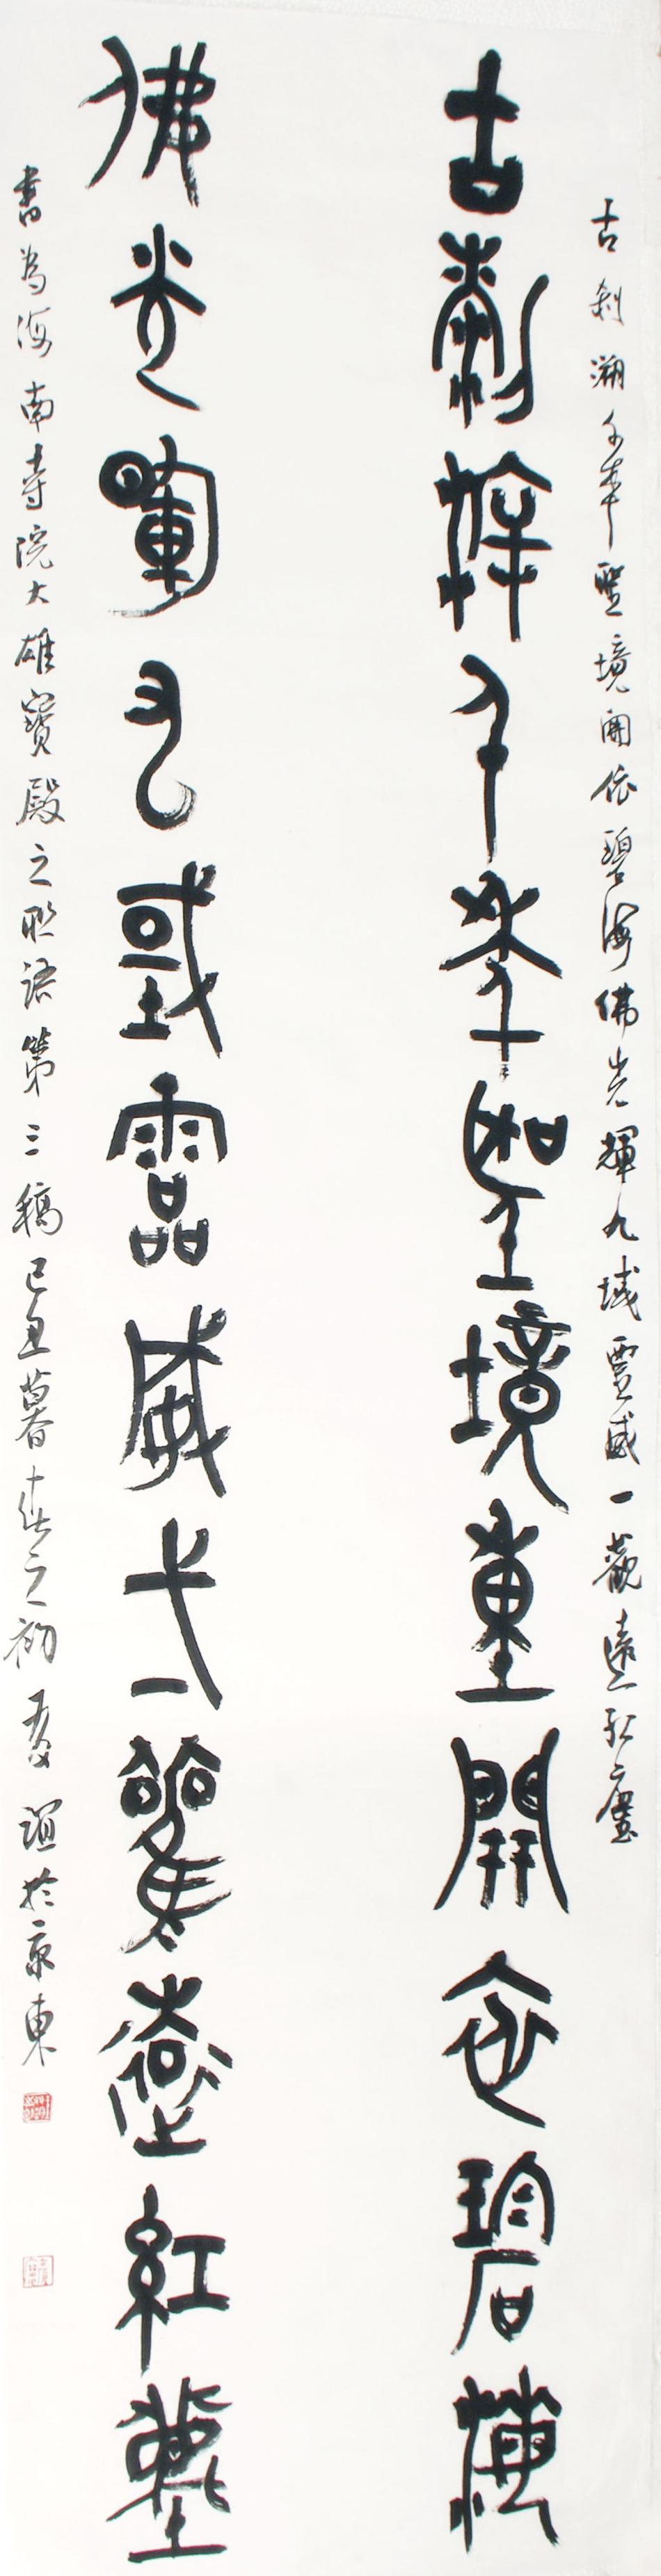 古刹溯千年聖境開依碧海佛光輝九域靈威一觀遠紅塵
古刹溯千年聖境重開依碧海
佛光暉九域靈威弌觀遠紅塵
書為海南寺院大雄寶殿之聯語第三稿己丑暮春之初誼於京東